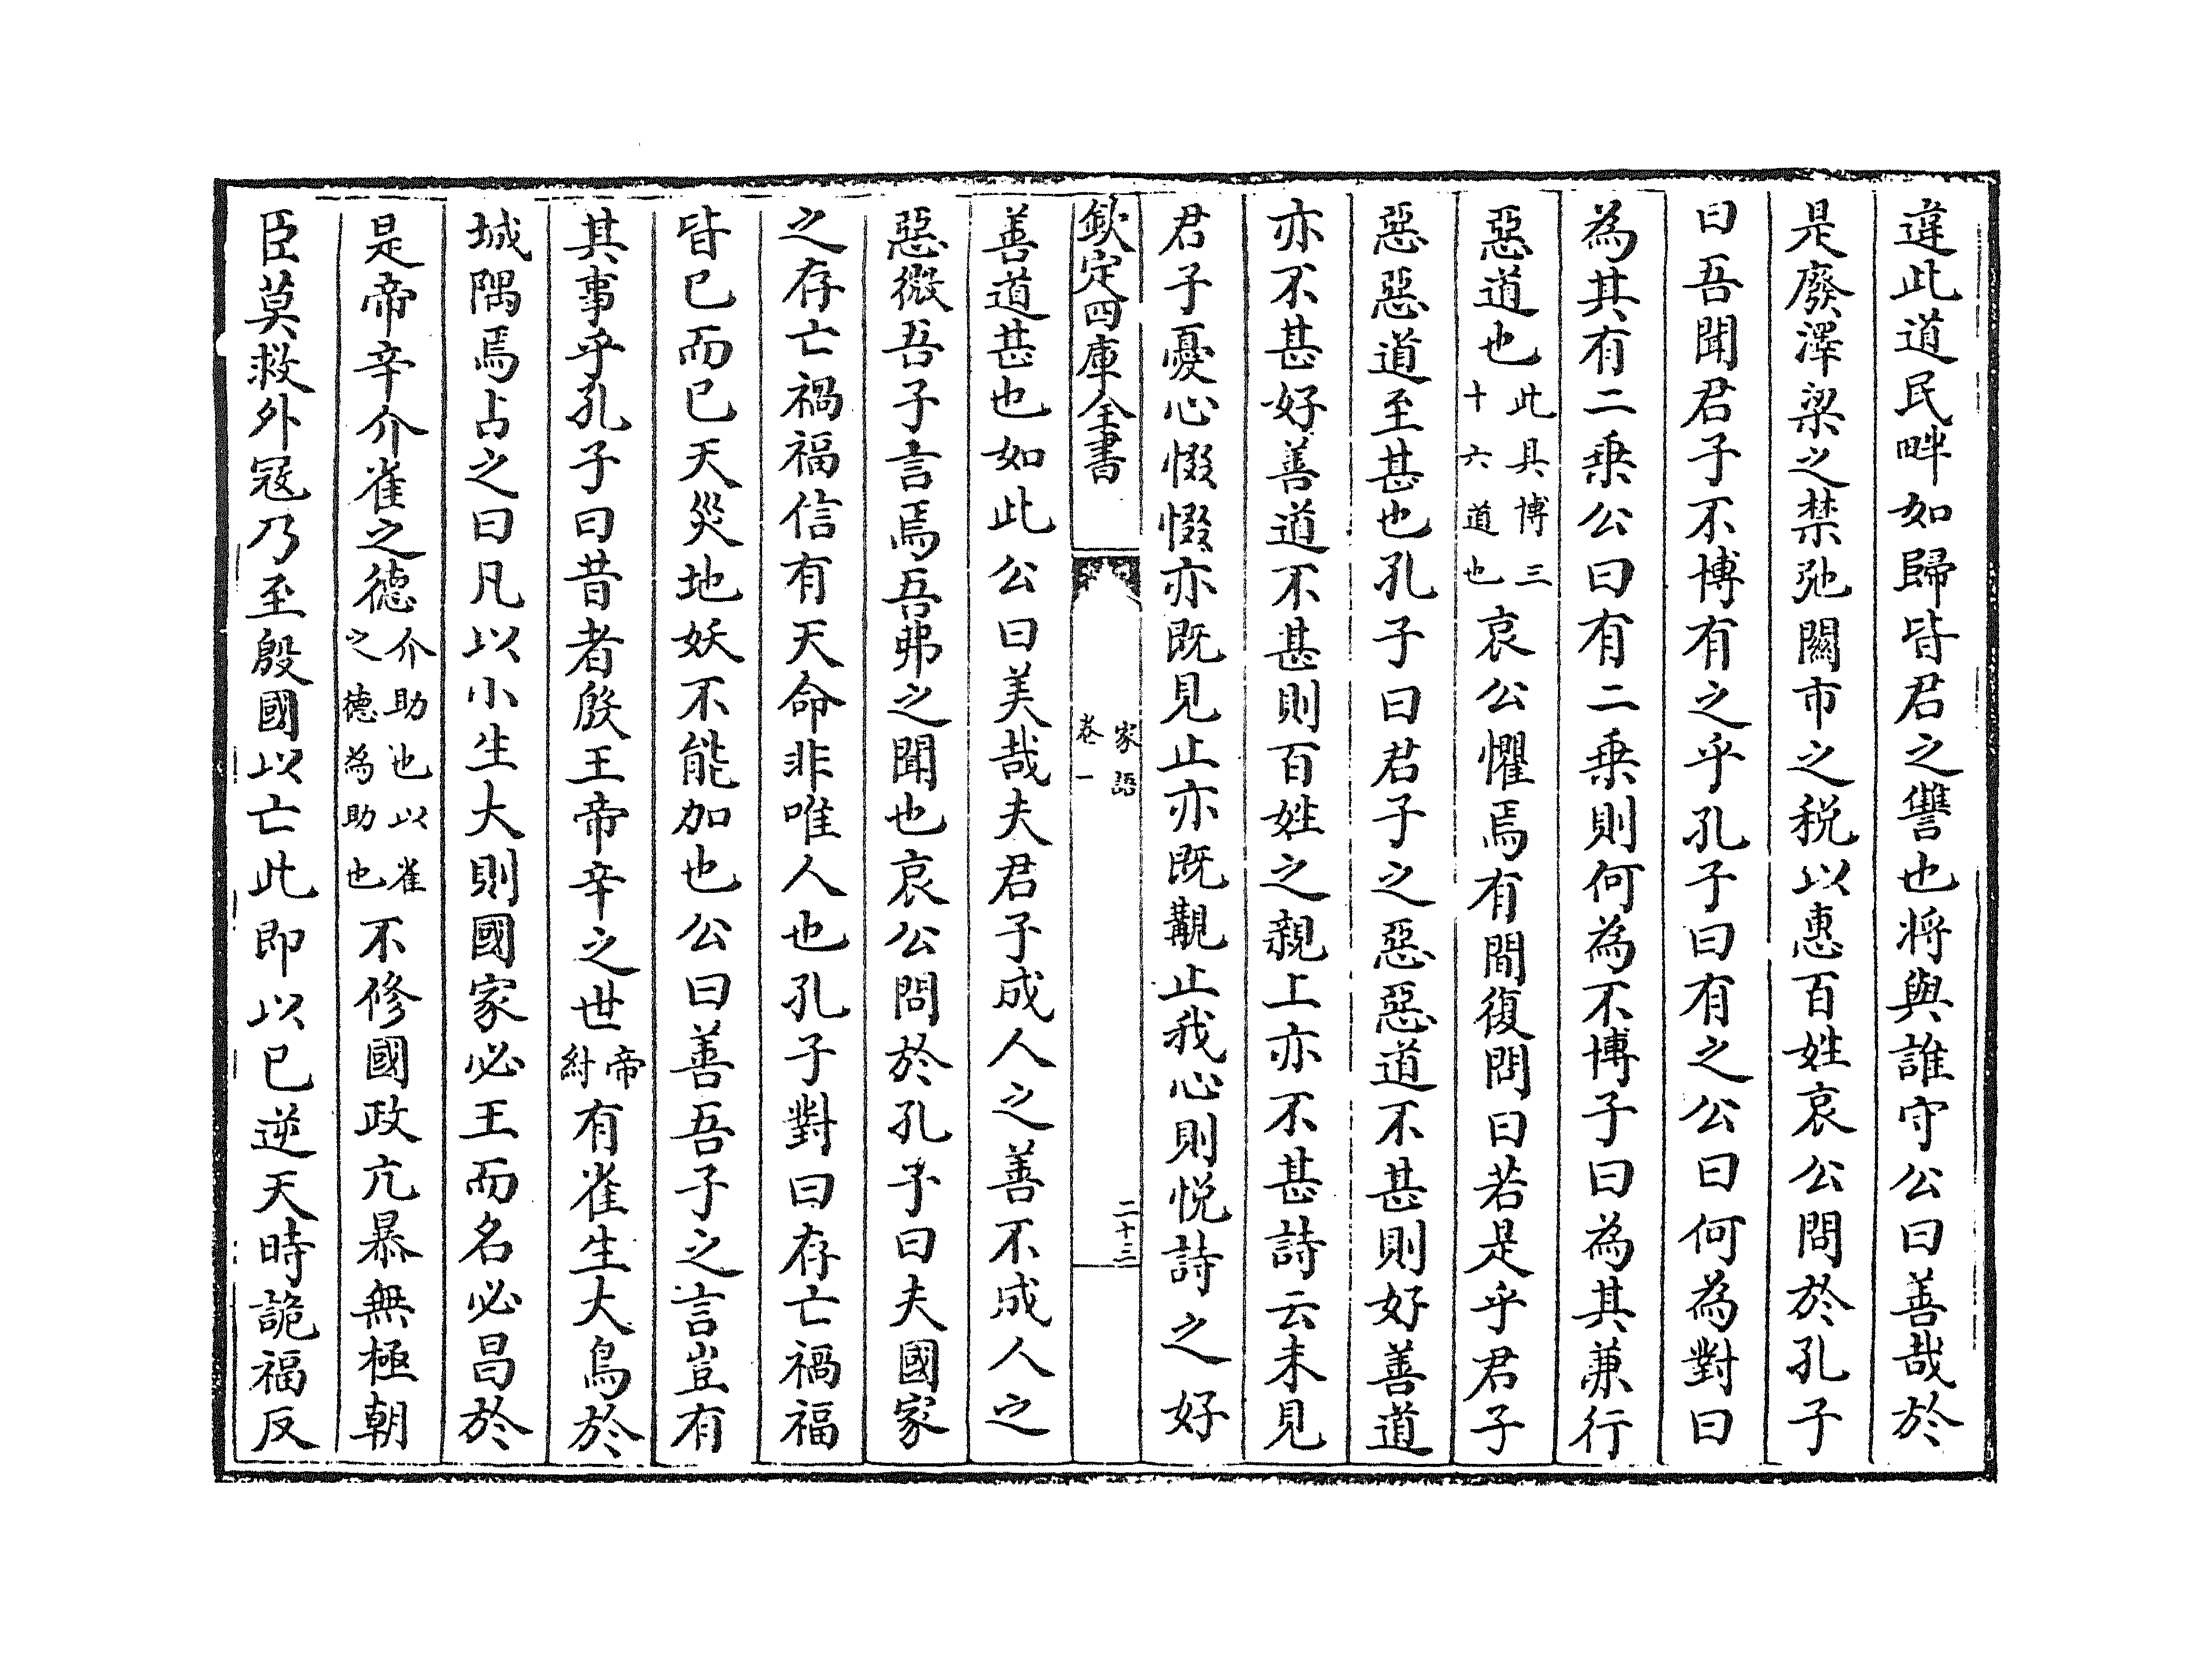 違此道民畔如歸皆君之讐也將與誰守公曰善哉於
是廢澤梁之禁弛關市之税以惠百姓哀公問於孔子
曰吾聞君子不博有之乎孔子曰有之公曰何為對曰
為其有二乗公曰有二乗則何為不博子曰為其兼行
惡道也此具博三十六道也哀公懼焉有間復問曰若是乎君子
惡惡道至甚也孔子曰君子之惡惡道不甚則好善道
亦不甚好善道不甚則百姓之親上亦不甚詩云未見
君子憂心惙惙亦既見止亦既覯止我心則悦詩之好
欽定四庫全書
家語
卷一
二十三
善道甚也如此公曰美哉夫君子成人之善不成人之
惡微吾子言焉吾弗之聞也哀公問於孔子曰夫國家
之存亡禍福信有天命非唯人也孔子對曰存亡禍福
皆已而已天災地妖不能加也公曰善吾子之言豈有
其事乎孔子曰昔者殷王帝辛之世帝紂有雀生大鳥於
城隅焉占之曰凡以小生大則國家必王而名必昌於
是帝辛介雀之德介助也以雀之德為助也不修國政亢暴無極朝
臣莫救外寇乃至殷國以亡此即以已逆天時詭福反